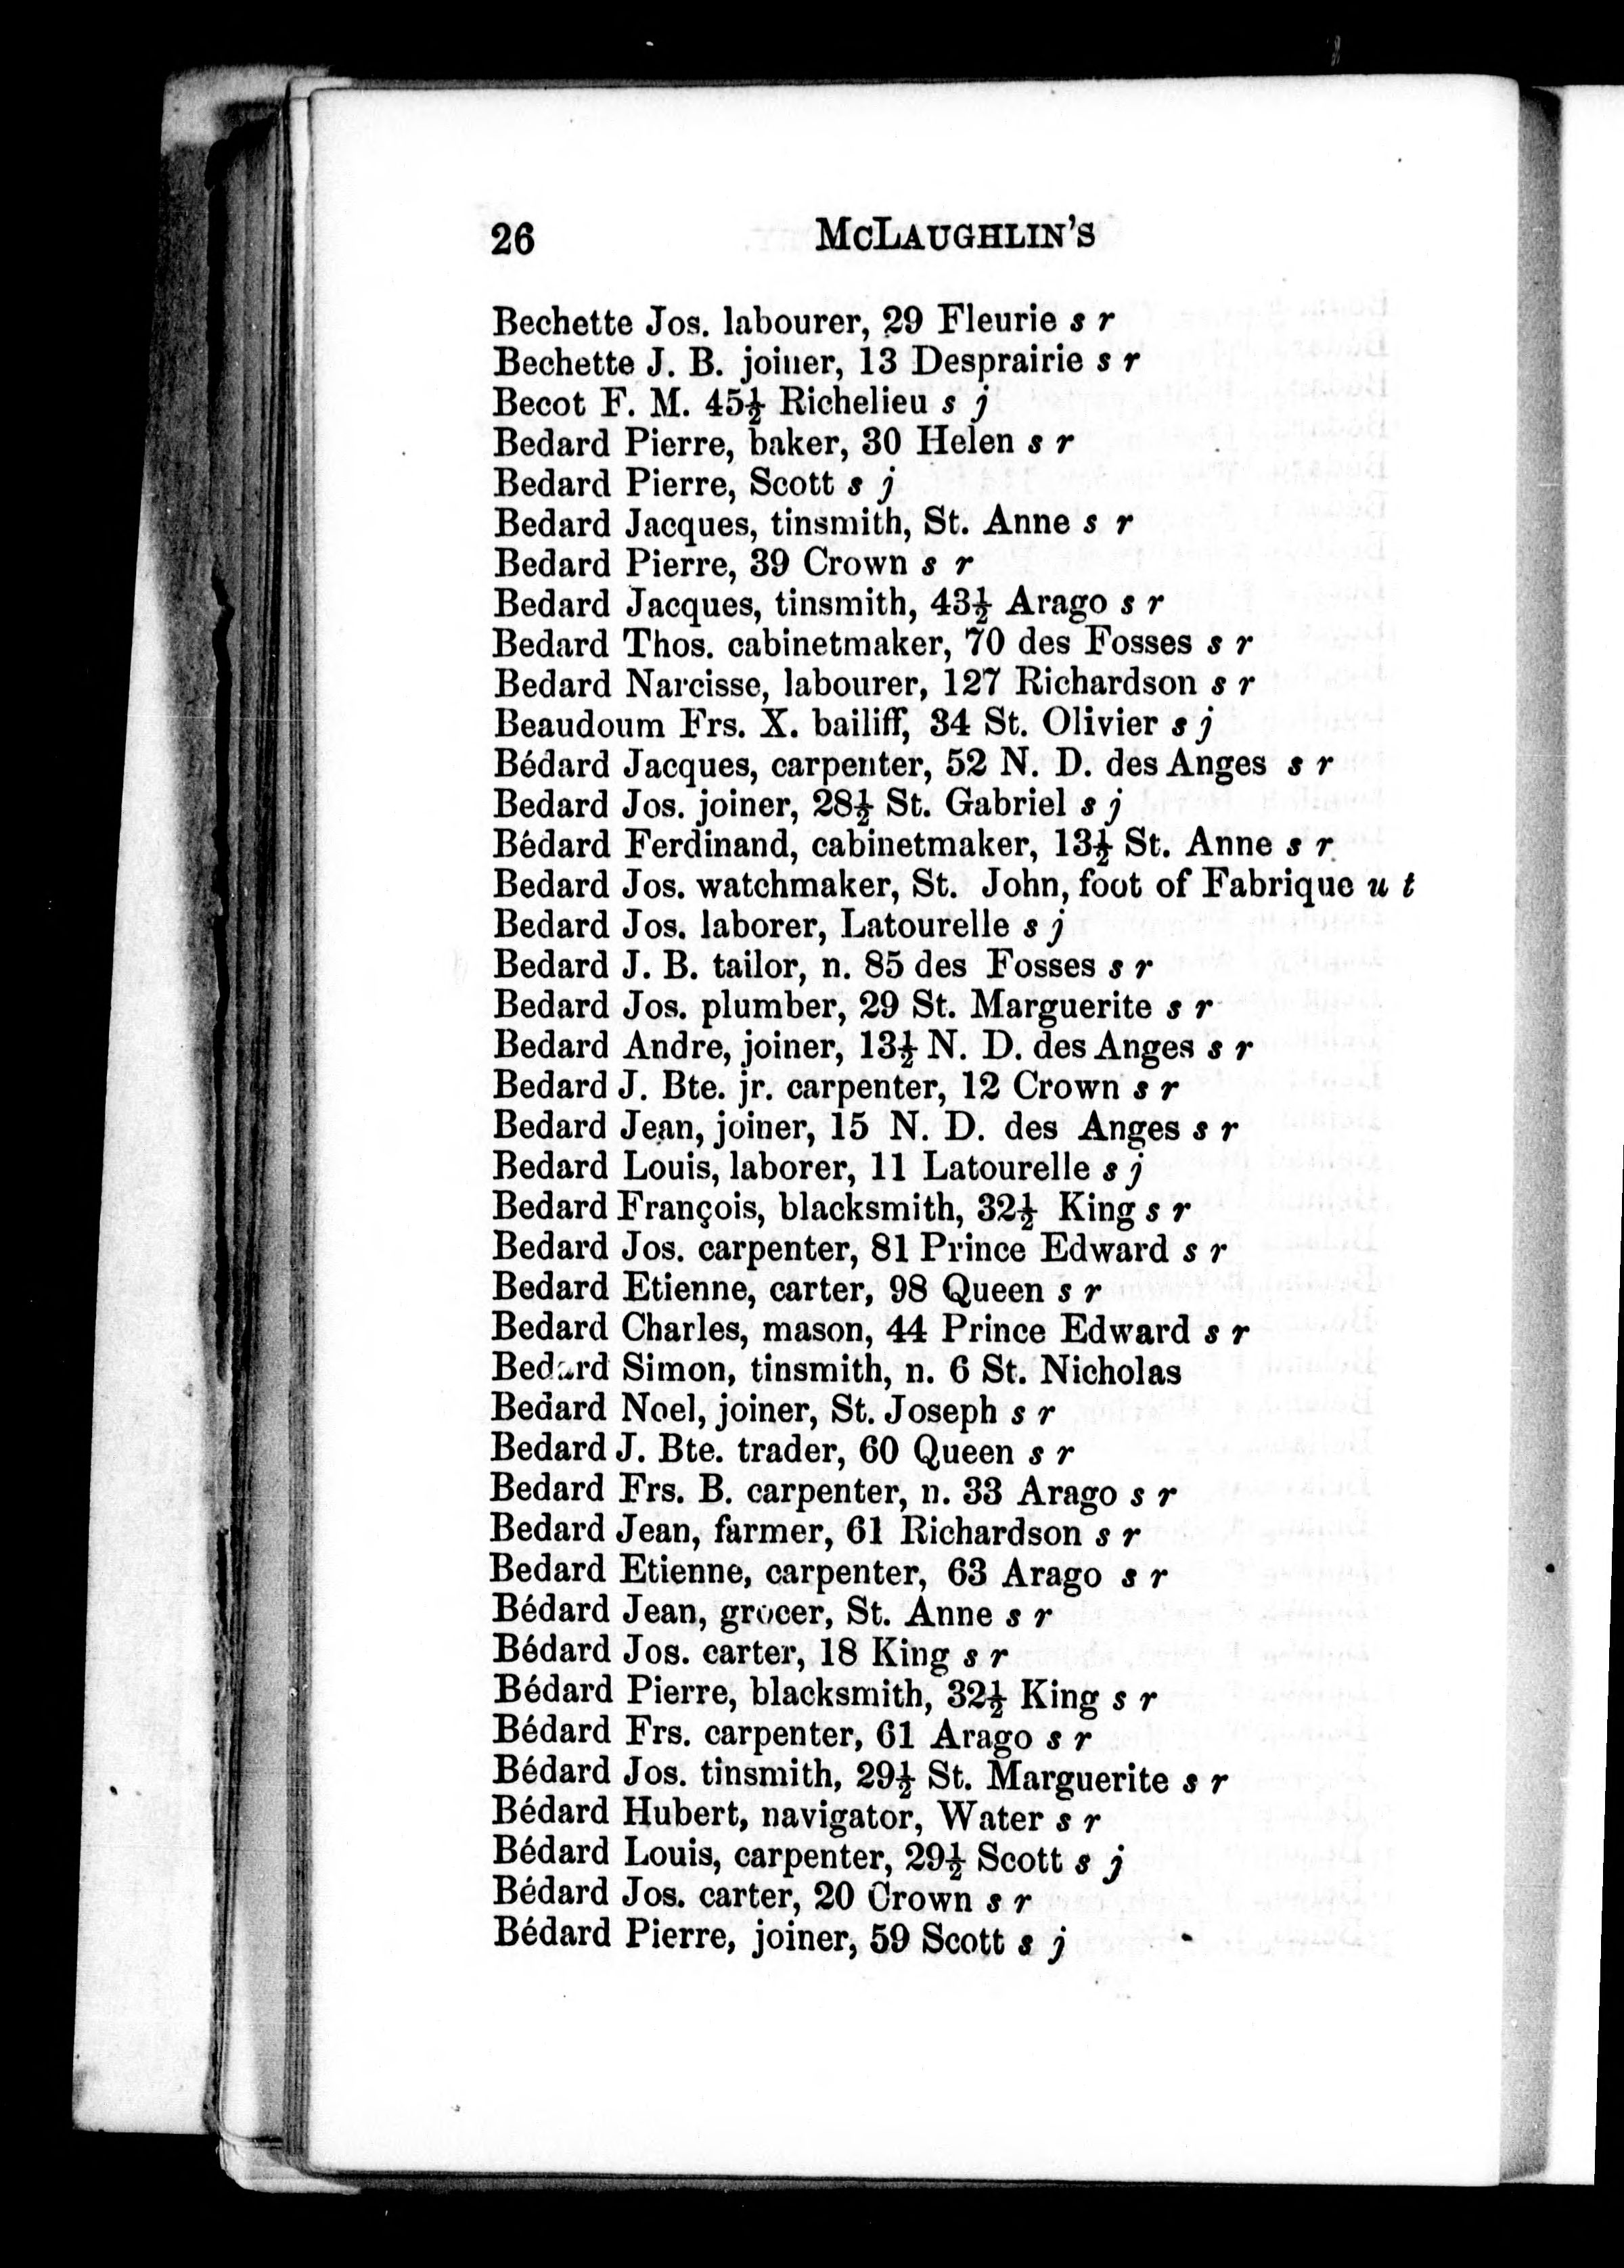 26 McLAUGHLIN'S
Bechette Jos. labourer, 29 Fleurie s r
Bechette J. B. joiner, 13 Desprairie s r
Becot F. M. 45½ Richelieu s j
Bedard Pierre, baker, 30 Helen s r
Bedard Pierre, Scott s j
Bedard Jacques, tinsmith, St. Anne s r
Bedard Pierre, 39 Crown s r
Bedard Jacques, tinsmith, 43½ Arago s r
Bedard Thos. cabinetmaker, 70 des Fosses s r
Bedard Narcisse, labourer, 127 Richardson s r
Beaudoum Frs. X. bailiff, 34 St. Olivier s j
Bédard Jacques, carpenter, 52 N. D. des Anges s r
Bedard Jos. joiner, 28½ St. Gabriel s j
Bédard Ferdinand, cabinetmaker, 13½ St. Anne s r
Bedard Jos. watchmaker, St. John, foot of Fabrique u t
Bedard Jos. laborer, Latourelle s j
Bedard J. B. tailor, n. 85 des Fosses s r
Bedard Jos. plumber, 29 St. Marguerite s r
Bedard Andre, joiner, 13½ N. D. des Anges s r
Bedard J. Bte. jr. carpenter, 12 Crown s r
Bedard Jean, joiner, 15 N. D. des Anges s r
Bedard Louis, laborer, 11 Latourelle s j
Bedard François, blacksmith, 32½ King s r
Bedard Jos. carpenter, 81 Prince Edward s r
Bedard Etienne, carter, 98 Queen s r
Bedard Charles, mason, 44 Prince Edward s r
Bedard Simon, tinsmith, n. 6 St. Nicholas
Bedard Noel, joiner, St. Joseph s r
Bedard J. Bte. trader, 60 Queen s r
Bedard Frs. B. carpenter, n. 33 Arago s r
Bedard Jean, farmer, 61 Richardson s r
Bedard Etienne, carpenter, 63 Arago s r
Bédard Jean, grocer, St. Anne s r
Bédard Jos. carter, 18 King s r
Bédard Pierre, blacksmith, 32½ King s r
Bédard Frs. carpenter, 61 Arago s r
Bédard Jos. tinsmith, 29½ St. Marguerite s r
Bédard Hubert, navigator, Water s r
Bédard Louis, carpenter, 29½ Scott s j
Bédard Jos. carter, 20 Crown s r
Bédard Pierre, joiner, 59 Scott s j